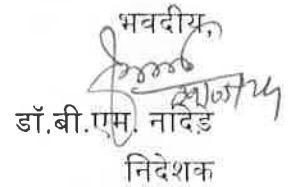 भवदीय,
डॉ.बी.एम. नांदेड़
निदेशक